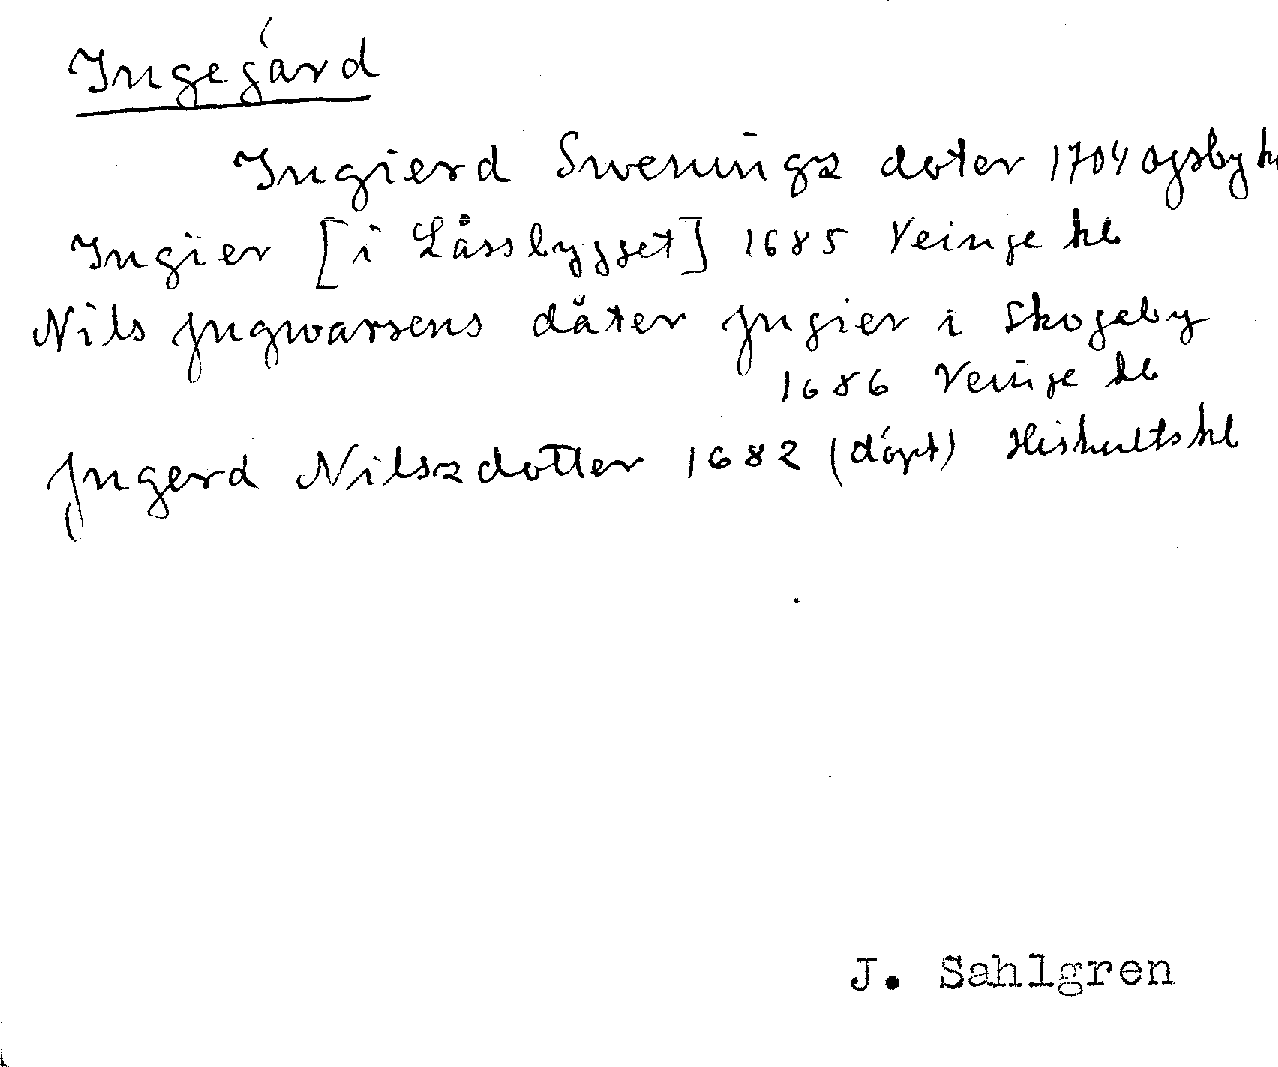 Ingegärd
Ingierd Swenings doter 1704 Ysby k
Ingier [i Låssbygget] 1685 Veinge kb
Nils Jngwarsens dåter Jngier i Skogaby
1686 Veinge kb
Jngerd Nilszdotter 1682 (döpt) Hishults kb
J. Sahlgren